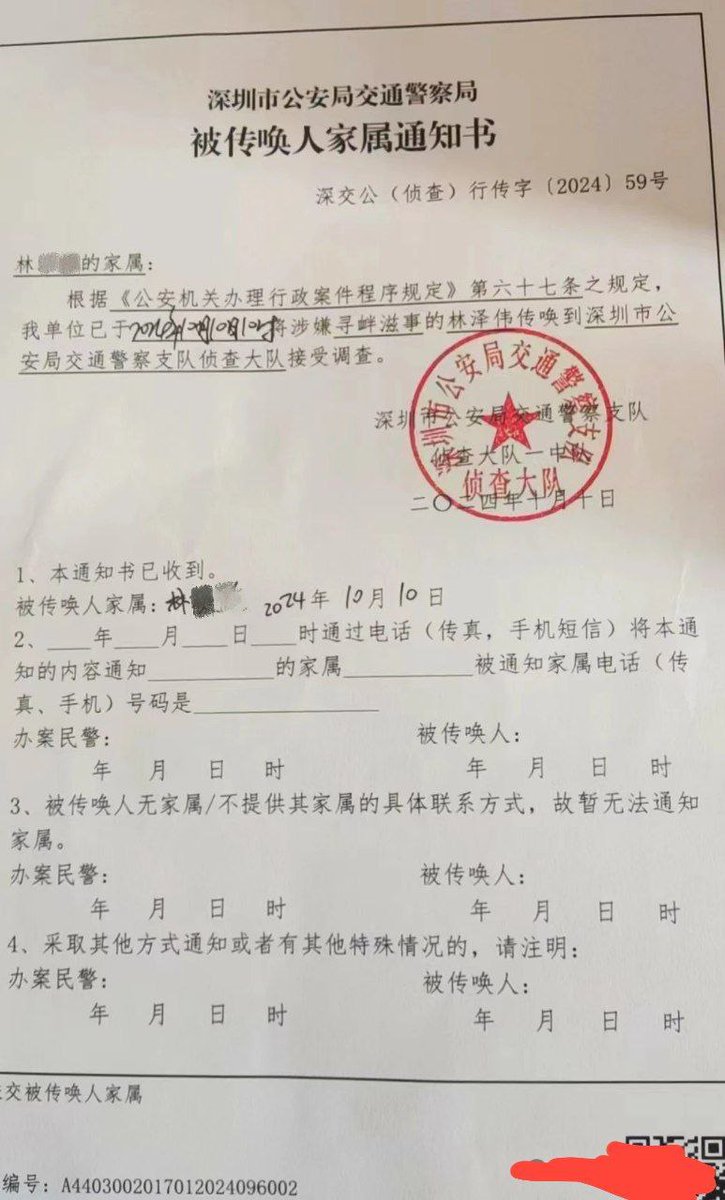 深圳市公安局交通警察局
被传唤人家属通知书
深交公（侦查）行传字〔2024〕59号
林 的家属：
根据《公安机关办理行政案件程序规定》第六十七条之规定，
我单位已于2024年10月10日 将涉嫌寻衅滋事的林泽伟传唤到深圳市公
安局交通警察支队侦查大队接受调查。
深圳市公安局交通警察支队
侦查大队一中队
二〇二四年十月十日
深圳市公安局交通警察支队
侦查大队
1、本通知书已收到。
被传唤人家属：林 2024年 10月 10日
2、____年____月____日____时通过电话（传真，手机短信）将本通
知的内容通知__________的家属__________被通知家属电话（传
真、手机）号码是______________
办案民警： 被传唤人：
年 月 日 时 年 月 日 时
3、被传唤人无家属/不提供其家属的具体联系方式，故暂无法通知
家属。
办案民警： 被传唤人：
年 月 日 时 年 月 日 时
4、采取其他方式通知或者有其他特殊情况的，请注明：
办案民警： 被传唤人：
年 月 日 时 年 月 日 时
交被传唤人家属
编号：A4403002017012024096002